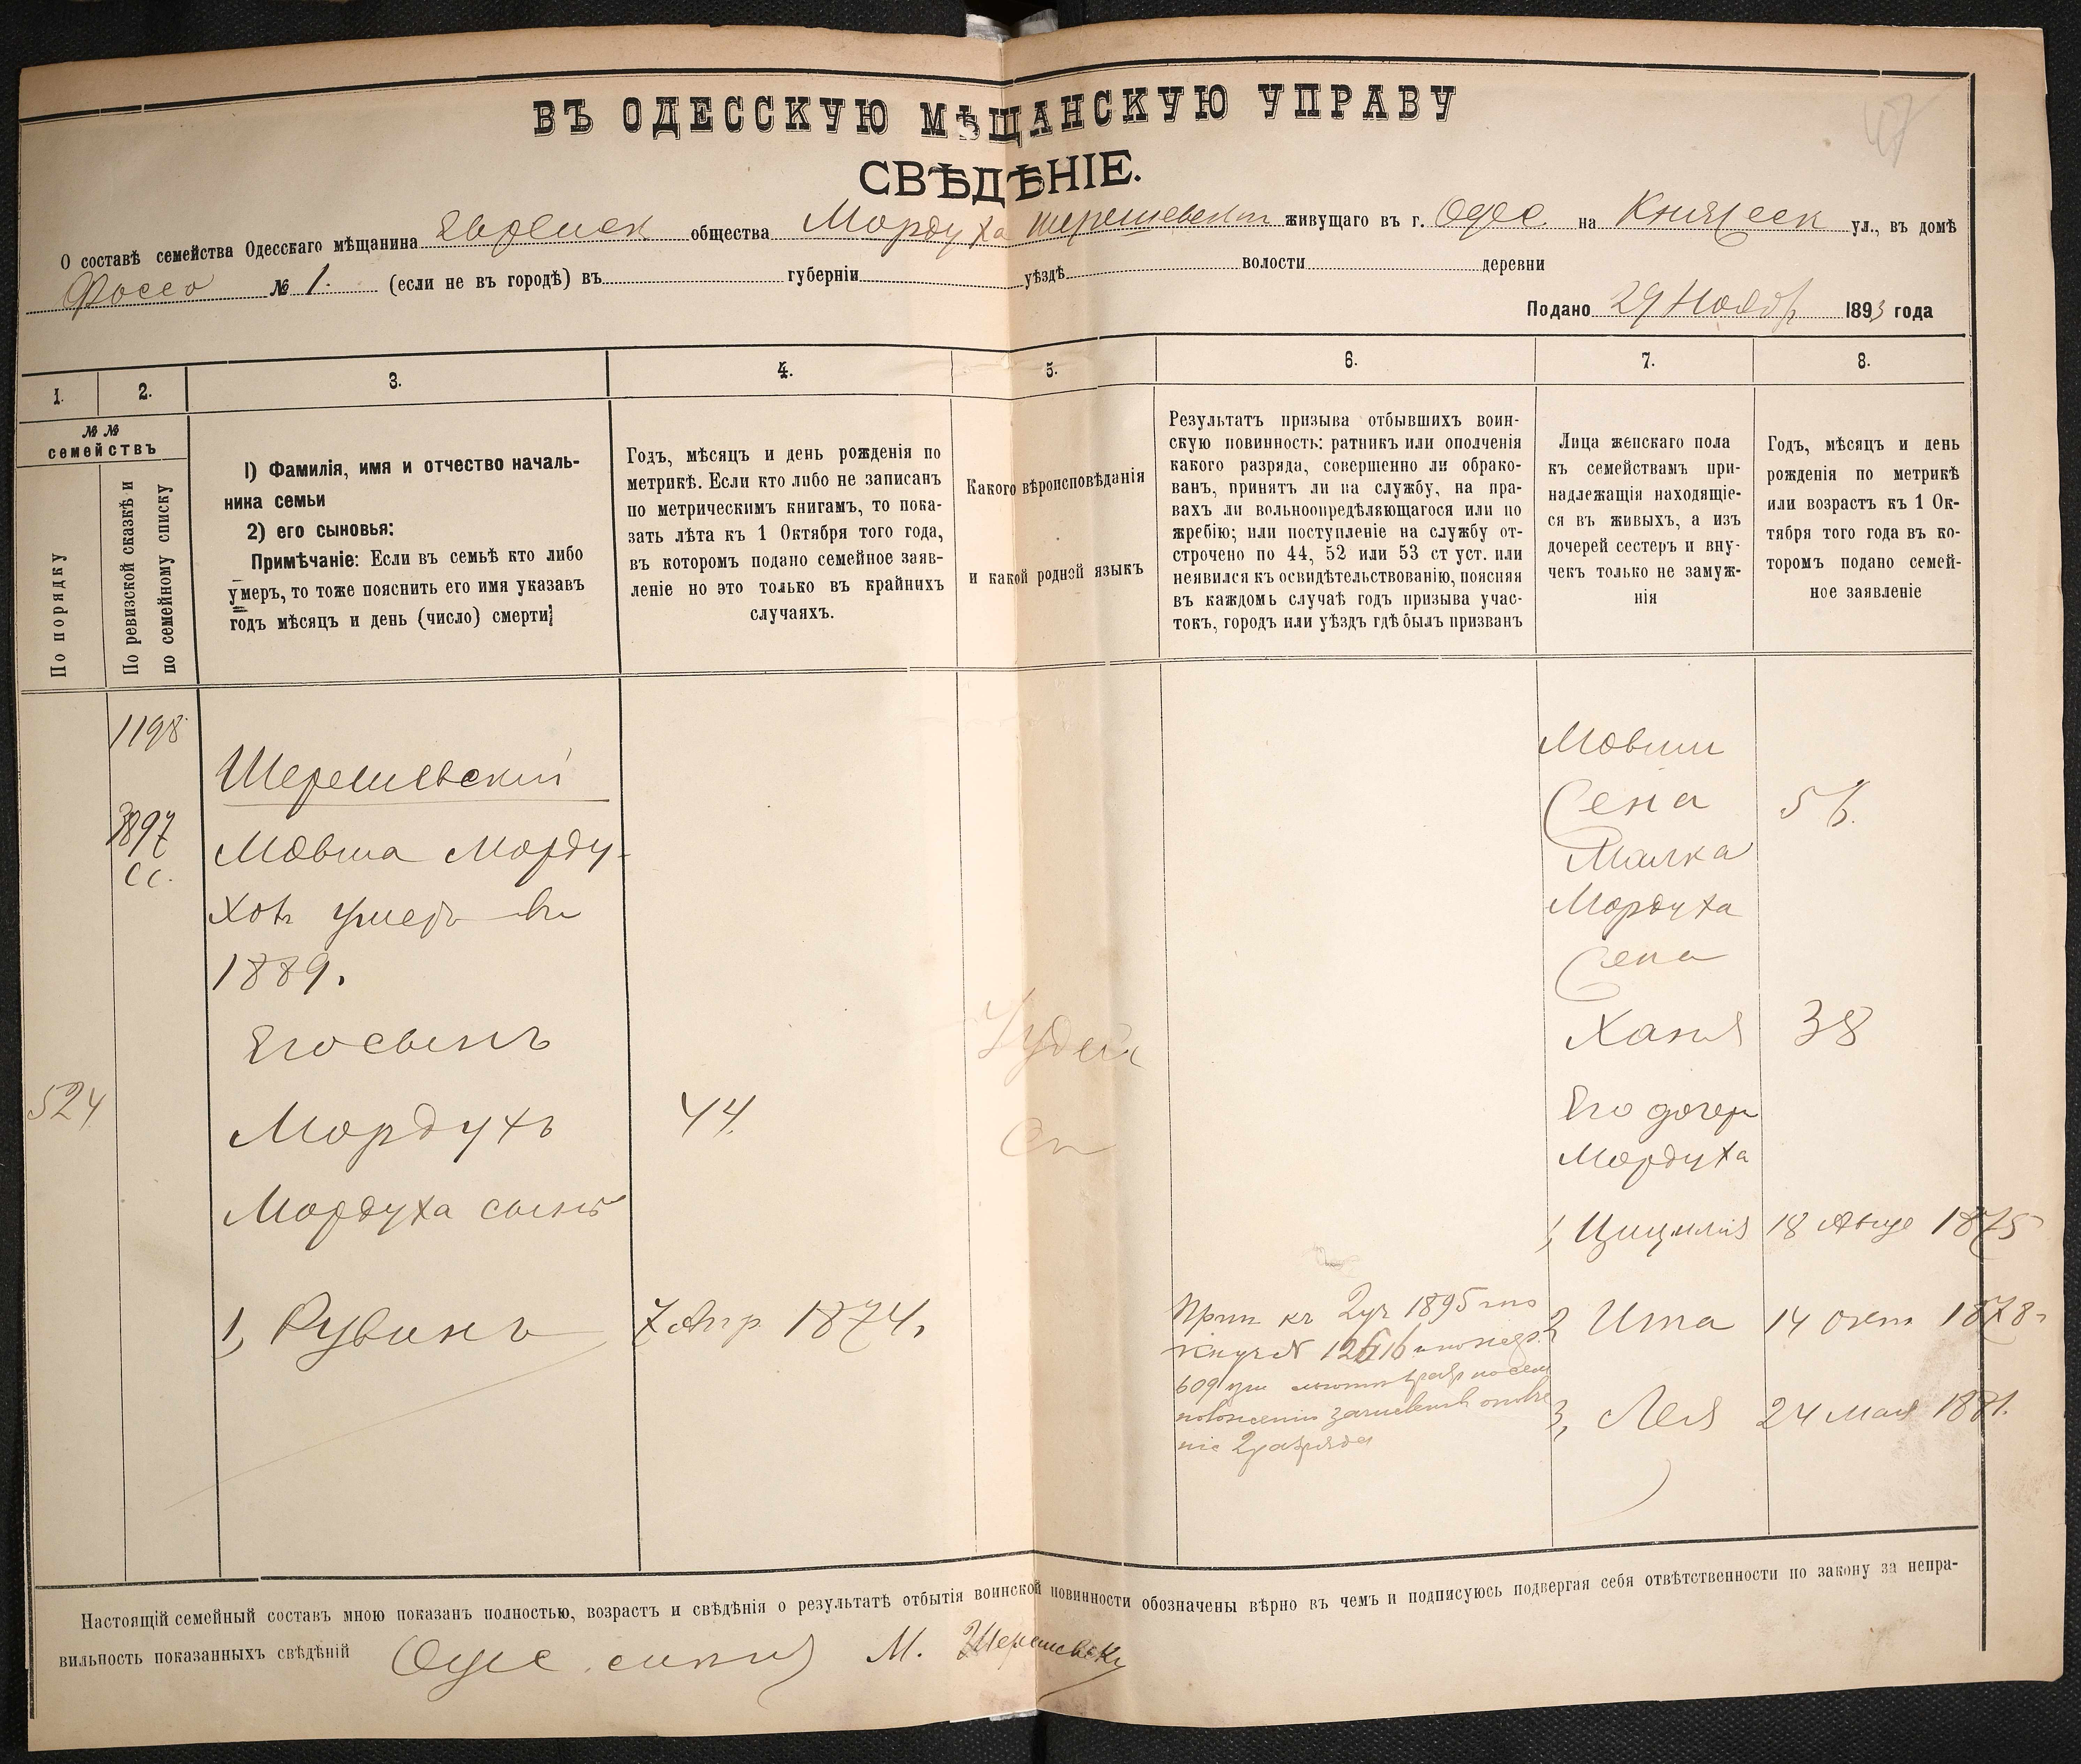 47
ВЪ ОДЕССКУЮ МѢЩАНСКУЮ УПРАВУ
СВѢДѢНІЕ.
О составѣ семейства Одесскаго мѣщанина Еврейск общества Мордуха Шерешевскаг живущаго въ г. Одес на Княжеск ул., въ домѣ
№ 1. (если не въ городѣ) въ губерніи уѣздѣ волости деревни
Подано 29 Ноябр 1893 года
1.
2.
3.
4.
5.
6.
7.
8.
№ №
семействъ
По порядку
По ревизской сказкѣ и
по семейному списку
1) Фамилія, имя и отчество началь-
ника семьи
2) его сыновья:
Примѣчаніе: Если въ семьѣ кто либо
умеръ, то тоже пояснить его имя указавъ
годъ мѣсяцъ и день (число) смерти
Годъ, мѣсяцъ и день рожденія по
метрикѣ. Если кто либо не записанъ
по метрическимъ книгамъ, то пока-
зать лѣта къ 1 Октября того года,
въ которомъ подано семейное заяв-
леніе но это только въ крайнихъ
случаяхъ.
Какого вѣроисповѣданія
и какой родной языкъ
Результатъ призыва отбывшихъ воин-
скую повинность: ратникъ или ополченія
какого разряда, совершенно ли обрако-
ванъ, принятъ ли на службу, на пра-
вахъ ли вольноопредѣляющагося или по
жребію; или поступленіе на службу от-
строчено по 44, 52 или 53 ст уст. или
неявился къ освидѣтельствованію, поясняя
въ каждомъ случаѣ годъ призыва учас-
токъ, городъ или уѣздъ гдѣ былъ призванъ
Лица женскаго пола
къ семействамъ при-
надлежащія находящіе-
ся въ живыхъ, а изъ
дочерей сестеръ и вну-
чекъ только не замуж-
нія
Годъ, мѣсяцъ и день
рожденія по метрикѣ
или возрастъ къ 1 Ок-
тября того года въ ко-
торомъ подано семей-
ное заявленіе
1198
3897
сс.
Шерешевскій
Мовша Морду-
ховъ умеръ въ
1889.
Его сынъ
524
Мордухъ
44.
Мордуха сынъ
1, Рувинъ
7 апр 1874.
Іудей
Прин къ 2 уч 1895
№ 12616
609
2 разряда
Мовши
Жена
Малка
Мордуха
Жена
Ханя
38
Его дочери
Мордуха
1, Цицилія 18 Авгу 1875
2, Ита 14 окт 1878
3, Лея 24 мая 1881.
Настоящій семейный составъ мною показанъ полностью, возрастъ и свѣдѣнія о результатѣ отбытія воинской повинности обозначены вѣрно въ чемъ и подписуюсь подвергая себя отвѣтственности по закону за непра-
вильность показанныхъ свѣдѣній М. Шерешевски